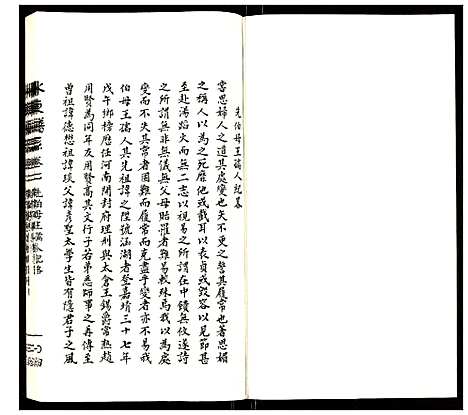 先伯母王孺人記墓
嘗思婦人之道其處變也矢不更之誓其履常也著思媚
之稱人以為之死靡他或截耳以表貞或毀容以見節甚
至赴湯蹈火而無二志以視易之所謂在中饋無攸遂詩
之所謂無非無儀無父母貽罹者難易較殊焉我以為處
變而不失其常者固難而履常而克盡乎變者亦不易我
伯母王孺人其兄祖諱之陞號涵湖者登嘉靖三十七年
戊午鄉榜歷任河南開封府理刑與太倉王錫爵常熟趙
用賢為同年友用賢其文行子若弟悉師事之再傳至
曾祖諱德懋祖諱琰父諱彥聖太學生皆有隱君子之風